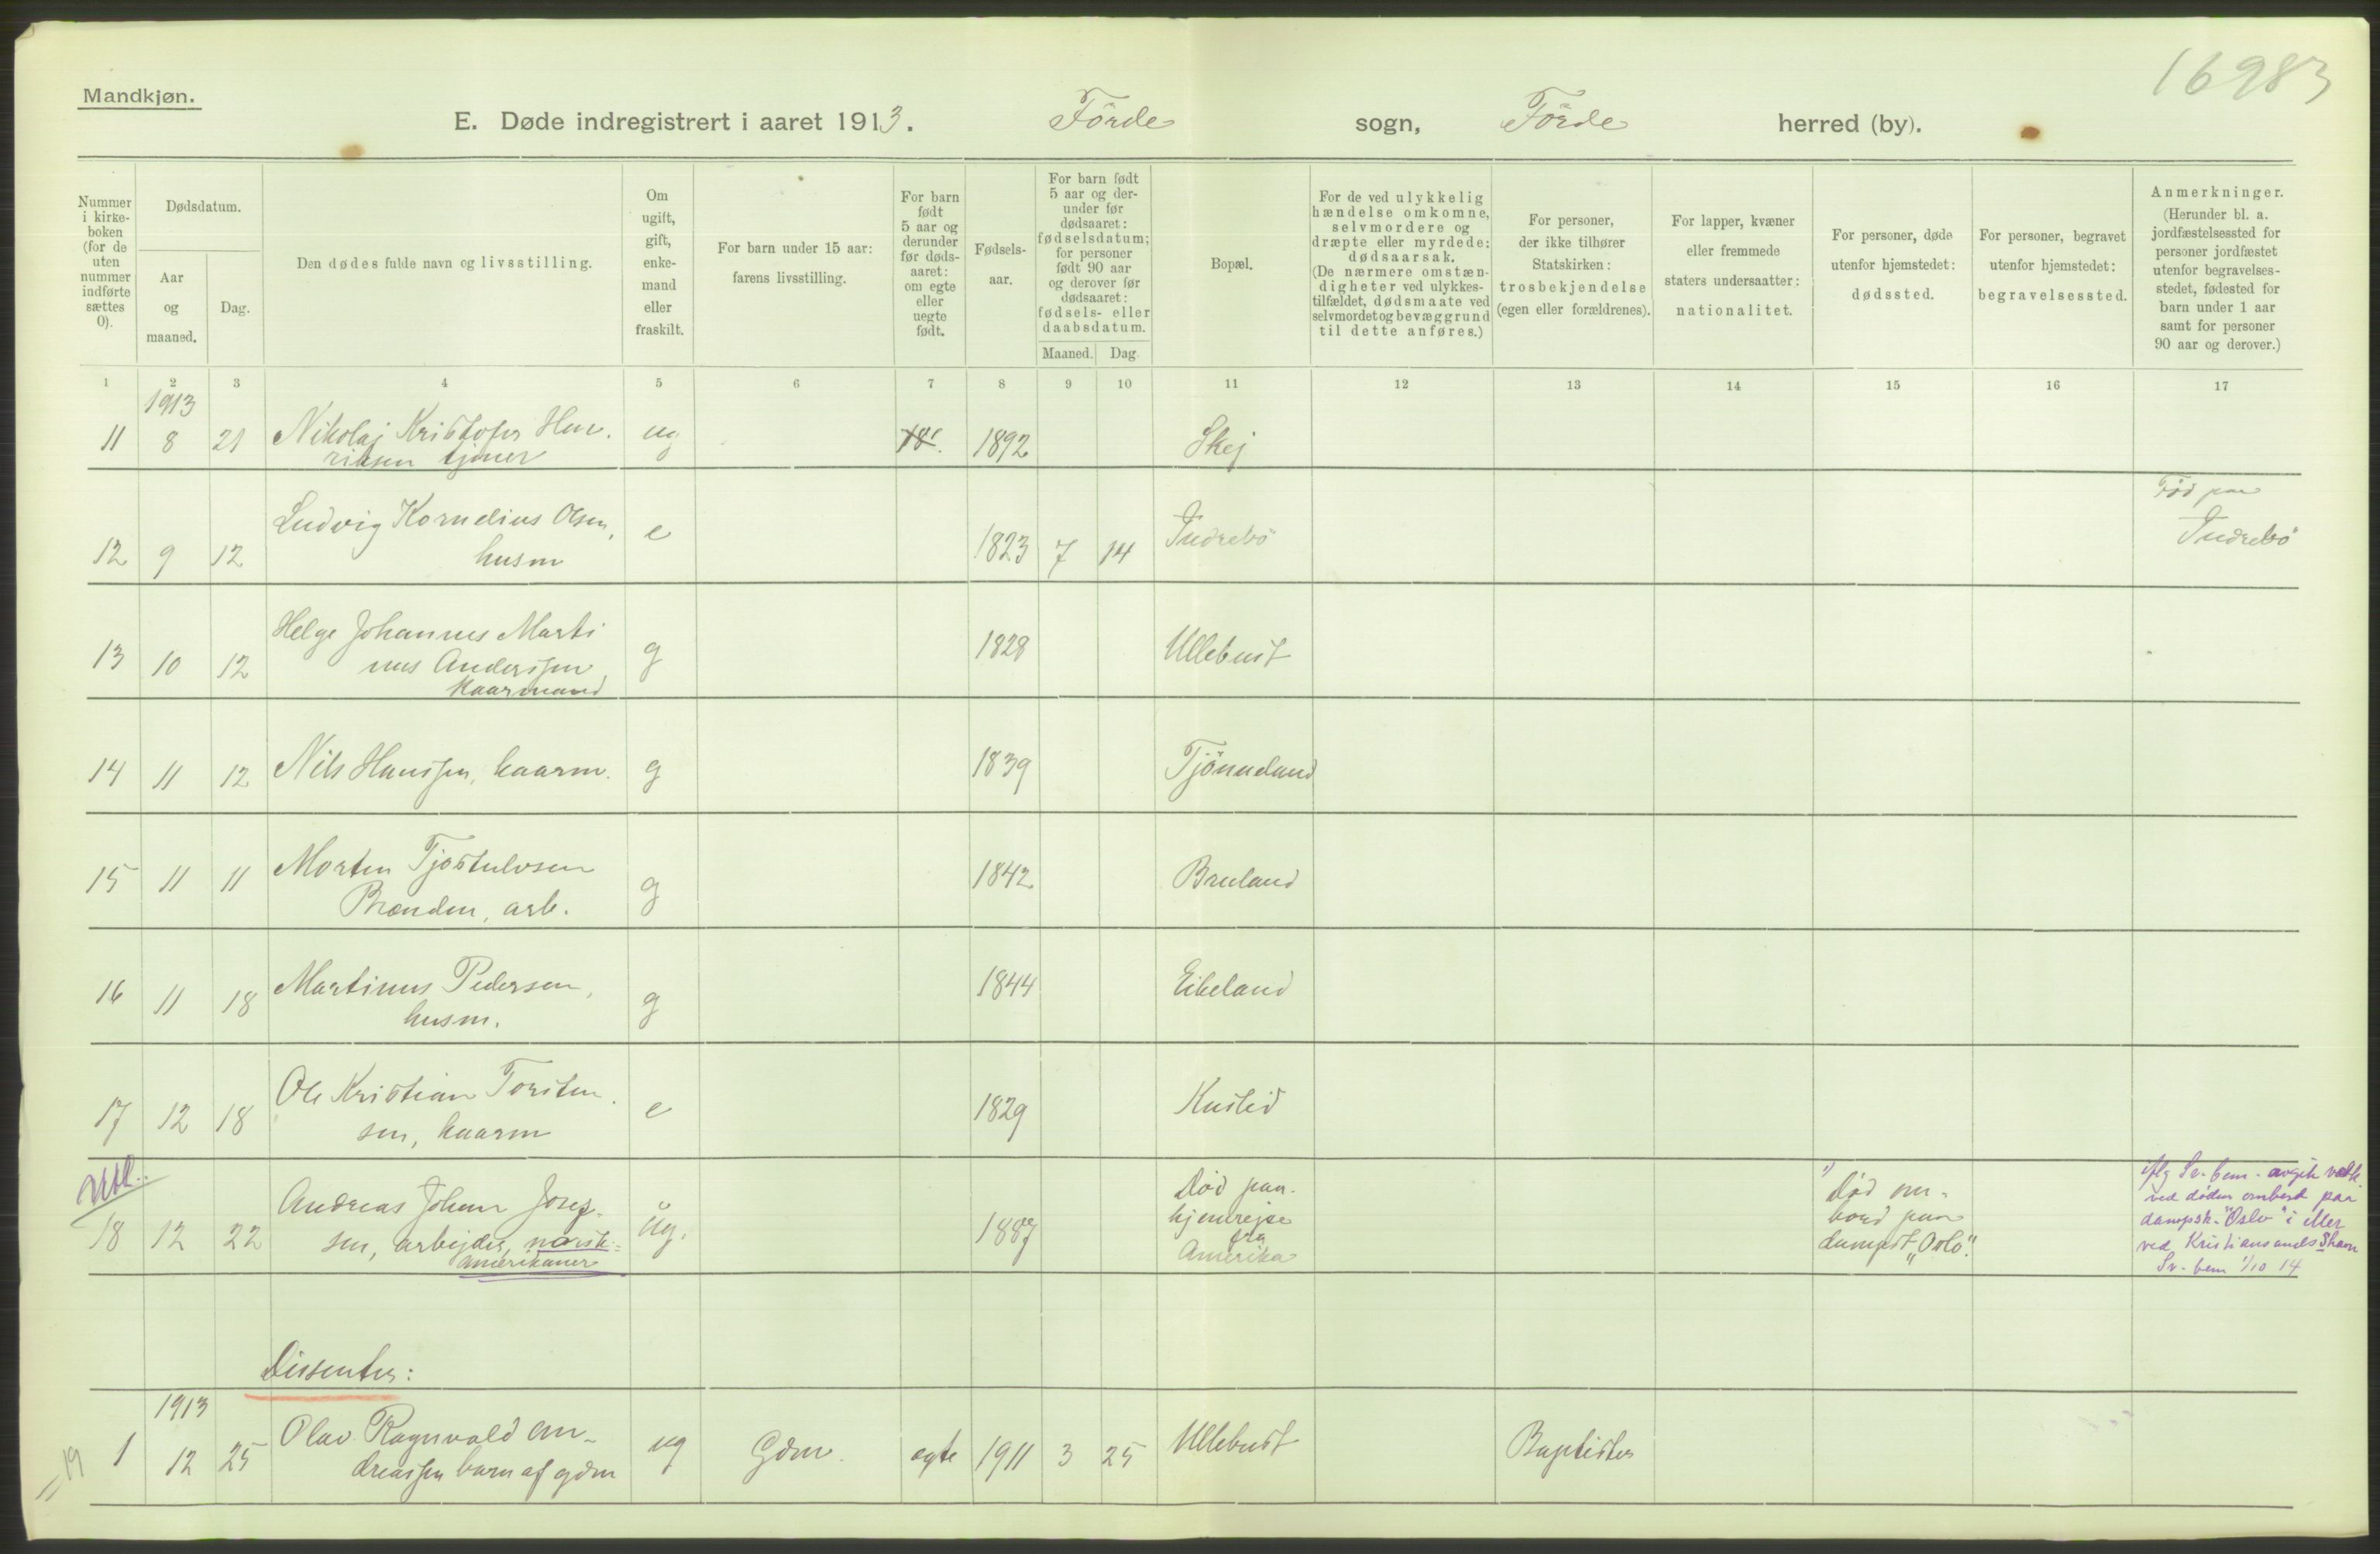 16983
Mandkjøn.
E. Døde indregistrert i aaret 1913. Förde sogn, Förde herred (by).
Nummer i kirke-boken (for de uten nummer indførte sættes 0).
Dødsdatum.
Aar og maaned.
Dag.
Den dødes fulde navn og livsstilling.
Om ugift, gift, enke-mand eller fraskilt.
For barn under 15 aar: farens livsstilling.
For barn født 5 aar og derunder før døds-aaret: om egte eller uegte født.
Fødsels-aar.
For barn født 5 aar og der-under før dødsaaret: fødselsdatum; for personer født 90 aar og derover før dødsaaret: fødsels- eller daabsdatum.
Maaned. Dag.
Bopæl.
For de ved ulykkelig hændelse omkomne, selvmordere og dræpte eller myrdede: dødsaarsak. (De nærmere omstæn-digheter ved ulykkes-tilfældet, dødsmaate ved selvmordet og bevæggrund til dette anføres.)
For personer, der ikke tilhører Statskirken: trosbekjendelse (egen eller forældrenes).
For lapper, kvæner eller fremmede staters undersaatter: nationalitet.
For personer, døde utenfor hjemstedet: dødssted.
For personer, begravet utenfor hjemstedet: begravelsessted.
Anmerkninger. (Herunder bl. a. jordfæstelsessted for personer jordfæstet utenfor begravelses-stedet, fødested for barn under 1 aar samt for personer 90 aar og derover.)
1 2 3 4 5 6 7 8 9 10 11 12 13 14 15 16 17
1913
11 8 21 Nikolaj Kristofer Hen. ug 18. 1892 Skej
riksen tjener
Fød paa
12 9 12 Ludvig Kornelius Olsen, e 1823 7 14 Indrebö Indrebö
husm
13 10 12 Helge Johannes Marti g 1828 Ullebust
nus Anderssen
Kaarmand
14 11 12 Nils Hanssen, kaarm. g 1839 Tjönneland
15 11 11 Morten Tjostulvsen g 1842 Bruland
Brænden, arb.
16 11 18 Martinus Pedersen, g 1844 Eikeland
husm.
17 12 18 Ole Kristian Torsten. e 1829 Kuslid
sen, kaarm
Utl.
18 12 22 Andreas Johan Josep. ug. 1887 Död paa
sen, arbejder, norsk-
amerikaner
hjemrejse
fra
Amerika
1) Död om-
bord paa
dampsk. "Oslo".
iflg Sv-bem. avgik ved
ved döden ombord paa
dampsk. "Oslo" i eller
ved Kristiansands havn
Sv-bem 1/10 14
Dissenter:
1913
19 1 12 25 Olav Ragnvald An- ug Gdm. egte 1911 3 25 Ullebust Baptister
dreassen barn af gdm